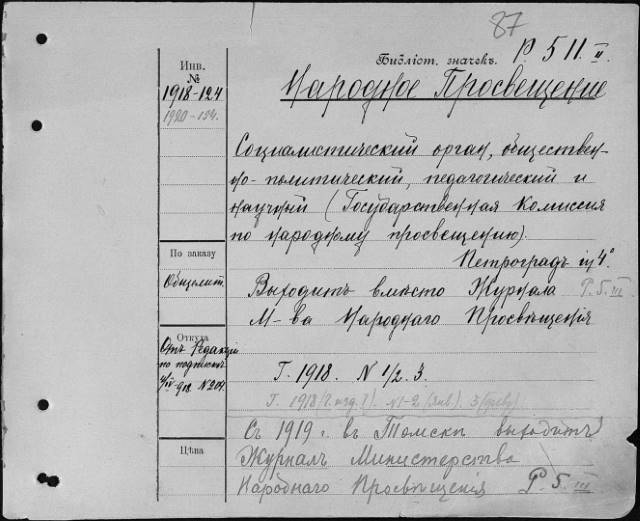 87
Библіот. значекъ.
P. 5 II. II
Инв.
№
1918-124
1920-154.
Народное Просвещение
Социалистический орган, обществен-
но-политический, педагогический и
научный (Государственная Комиссия
по народному просвещению).
Петроградъ in 4°
По заказу
Общелит.
Выходитъ вместо Журнала P. 5. III
М-ва Народнаго Просвѣщенія
Откуда
Отъ Редакціи
по подписке
4/IV 918 № 209.
Г. 1918. N 1/2. 3.
Г. 1918 N1-2 (янв.) 3 (февр)
Съ 1919 г. въ Томскѣ выходитъ
Журналъ Министерства
Народнаго Просвѣщенія P. 5. III
Цѣна